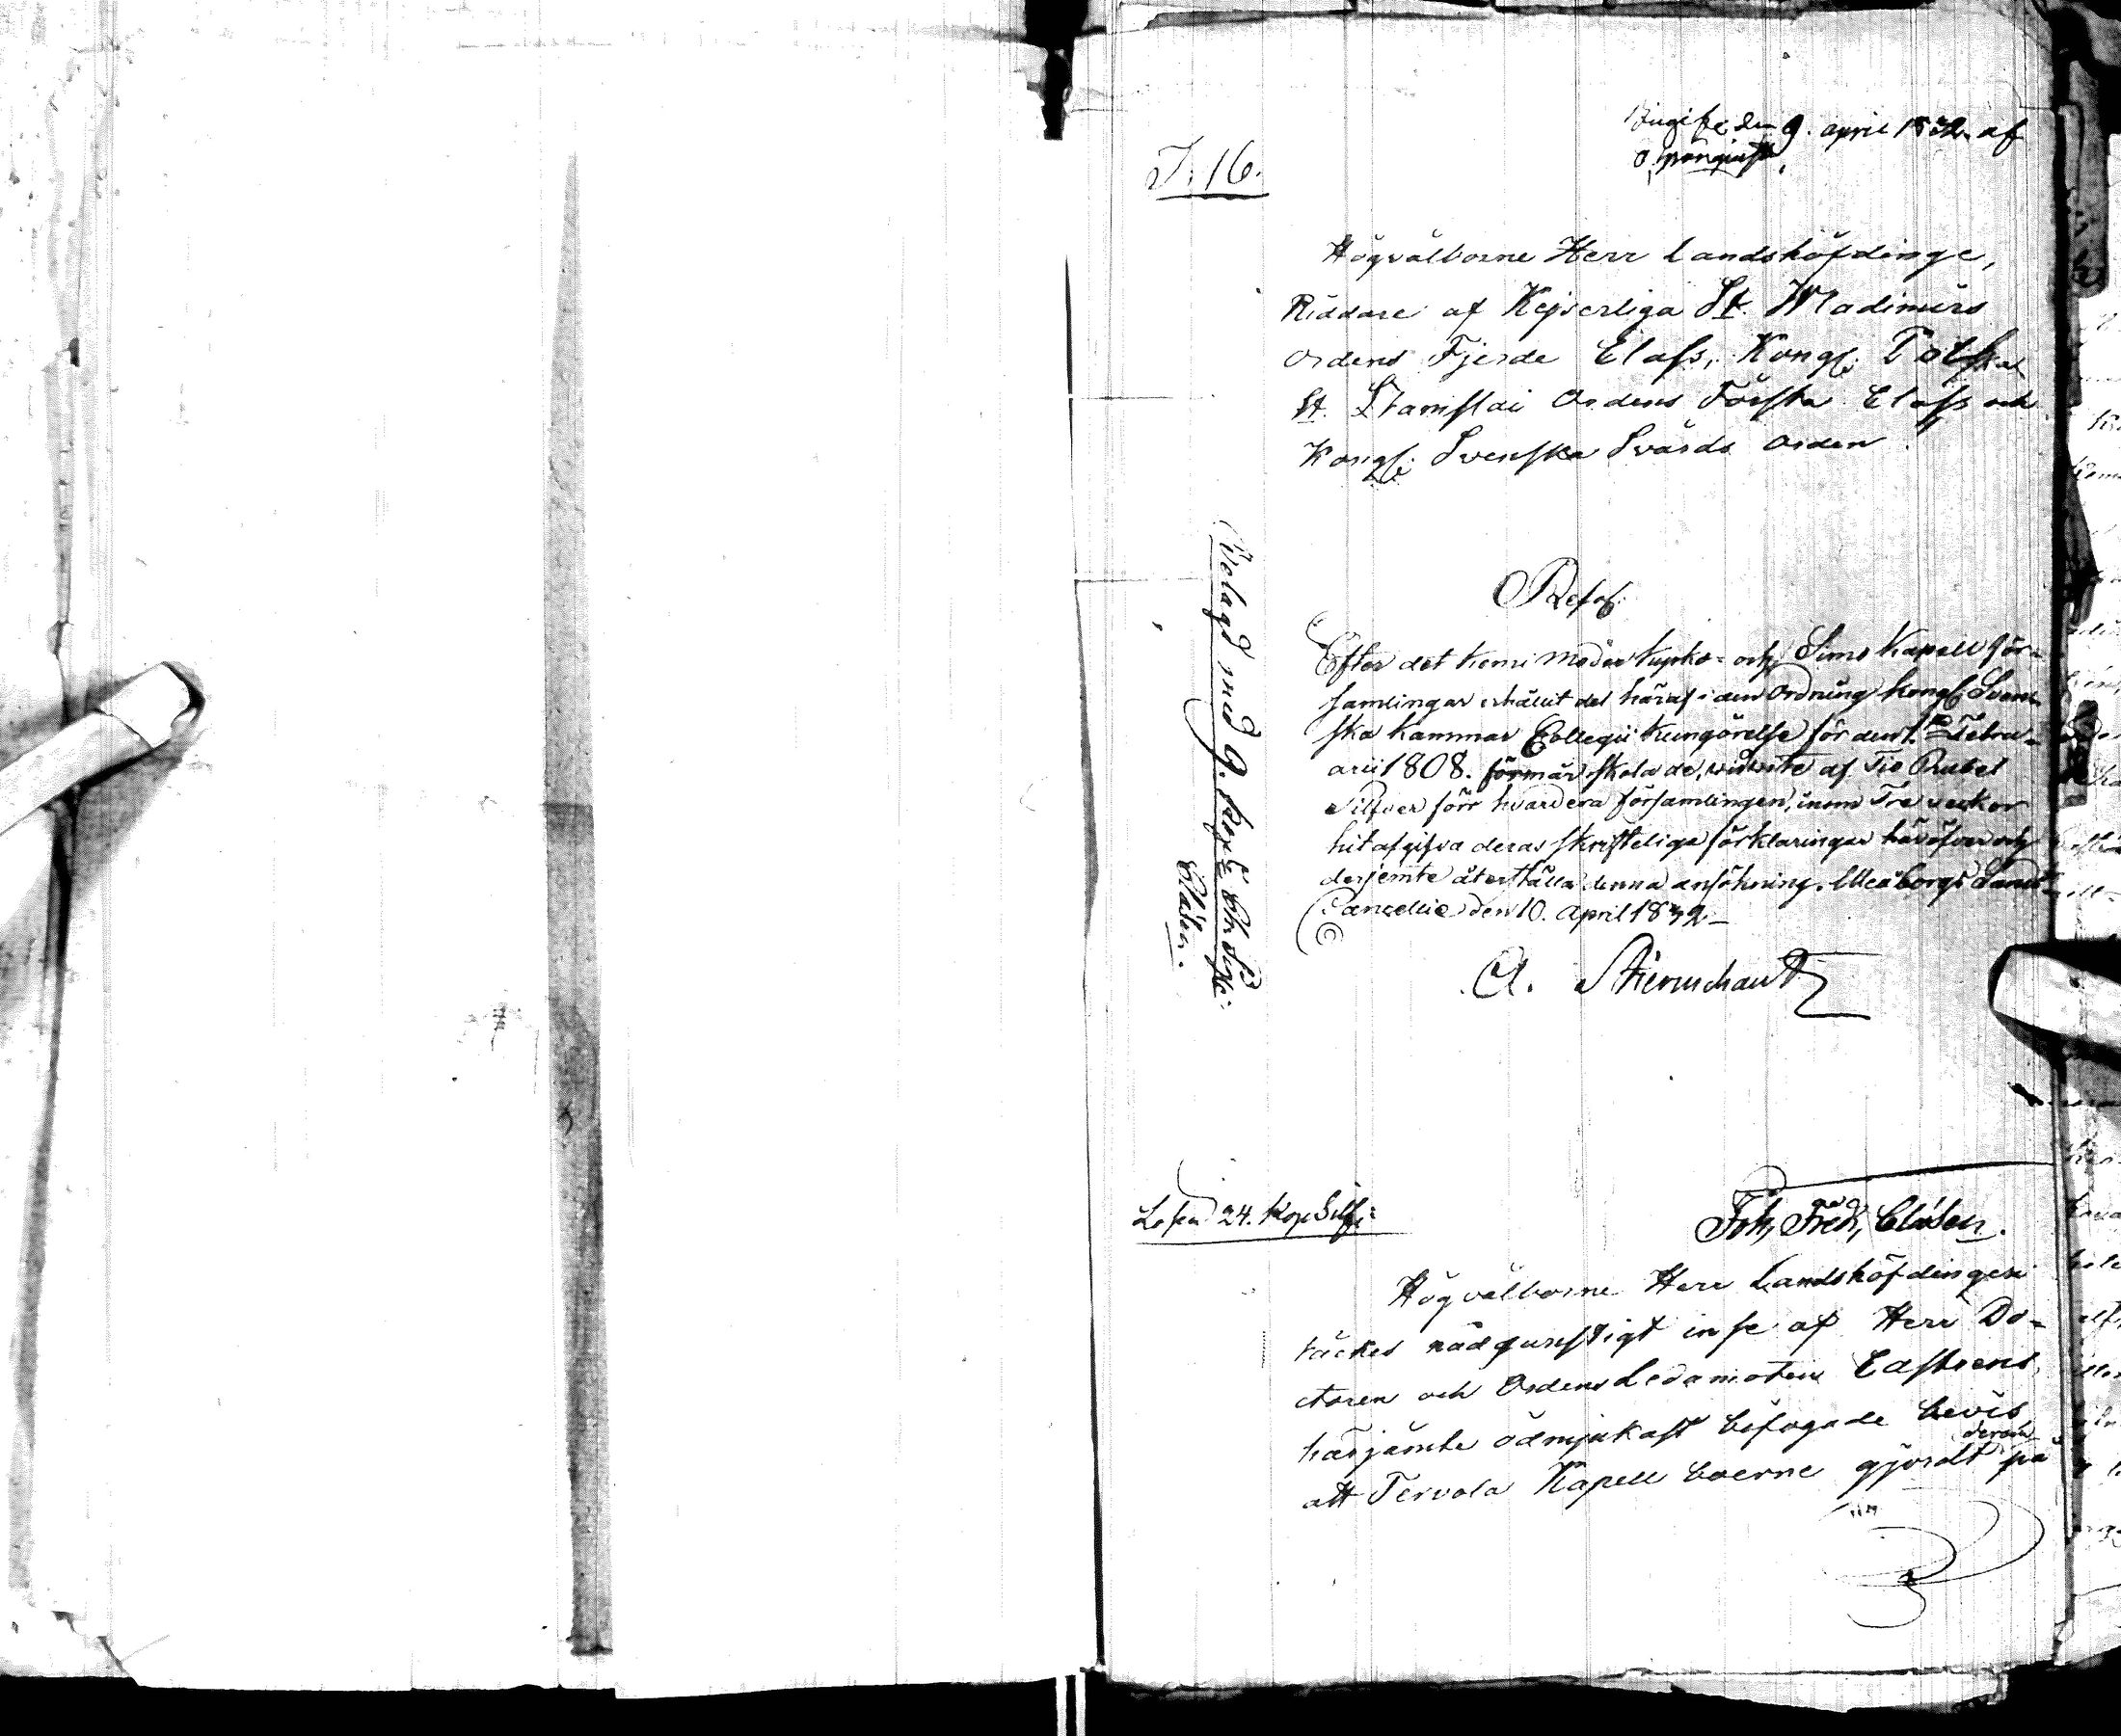 Ingifv. den 9. april 1832 af
J. 16.
Högvälborne Herr Landshöfdinge,
Riddare af Kejserliga St. Wladimirs
Ordens Fjerde Class, Kongl. Polska
St. Stanislai Ordens Första Class och
Kongl. Svenska Svärds Orden!
Resol:
Efter det Kemi Moderkyrko- och Simo Kapell för-
samlingar erhållit del häraf i den Ordning Kongl. Sven-
ska Kammar Collegii Kungörelse för den 1. Febru-
arii 1808. förmår skola de, widwite af Tio Rubel
Silfver förr hvardera församlingen, inom Tre veckor
hit afgifva deras skrifteliga förklaringar häröfver och
derjemte återställa denna ansökning. Uleåborgs Lands
Cancellie den 10. April 1832
A. Stiernschantz
Belagd med 9. kop. Ch. Sigil:
Clásen.
Lösen 24. Kop Silf:
Joh, Fredr, Clásen.
Högvälborne Herr Landshöfdingen
täckes rådgunstigt inse af Herr Do-
ctoren och Ordens Ledamoten Castrens
härjämte ödmjukast bifogade bevis
att Tervola Kapell boerne gjordt på